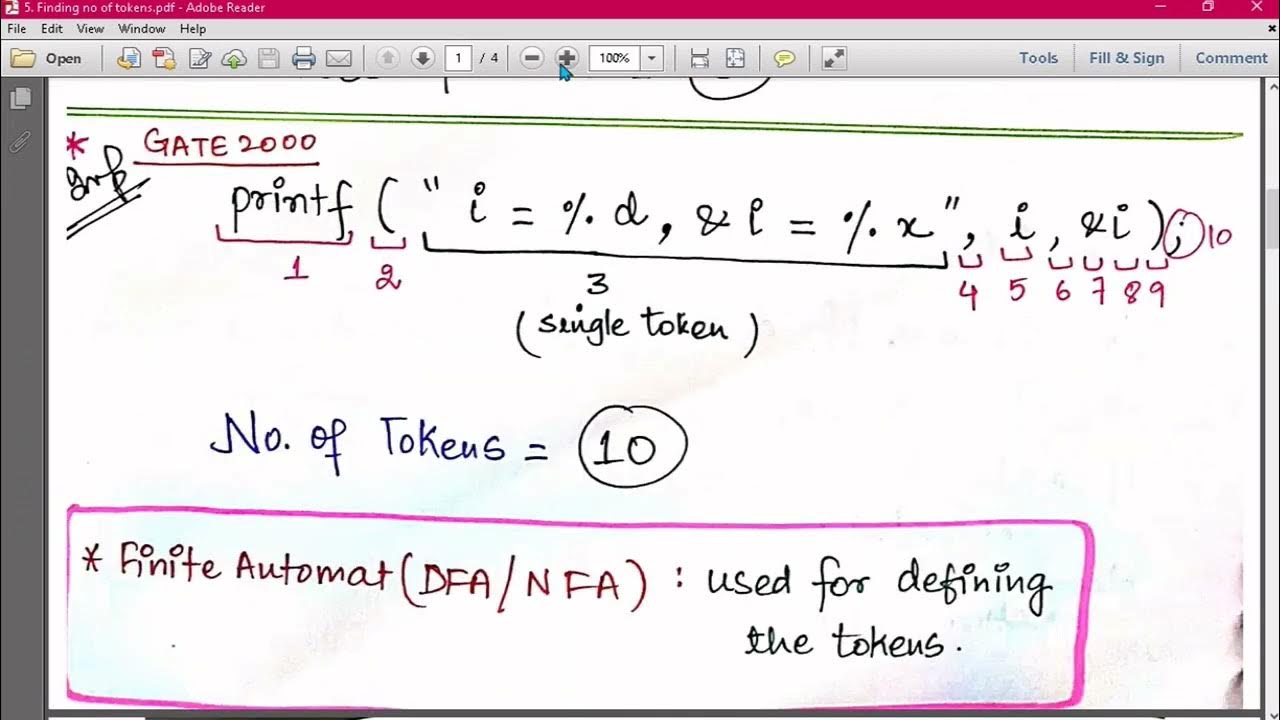 5. Finding no of tokens.pdf - Adobe Reader
File Edit View Window Help
Open 1 / 4 100% Tools Fill & Sign Comment
* GATE 2000
Imp
printf ( " i = %. d , & i = %. x " , i , & i ) ; 10
1 2 3 4 5 6 7 8 9
(single token)
No. of Tokens = 10
* Finite Automat (DFA/NFA) : used for defining
the tokens.